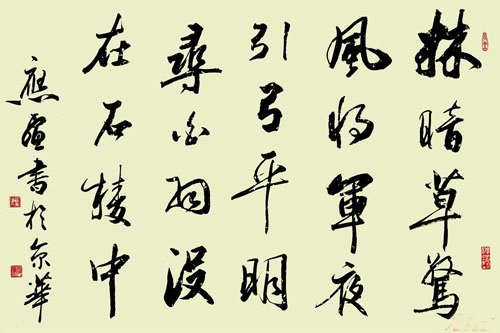 林暗草驚
風將軍夜
引弓平明
尋白羽沒
在石棱中
書於京華